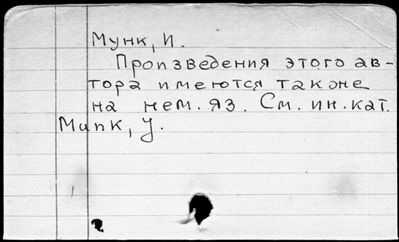 Мунк, И.
Произведения этого ав-
тора имеются также
на нем. яз. См. ин. кат.
Munk, J.